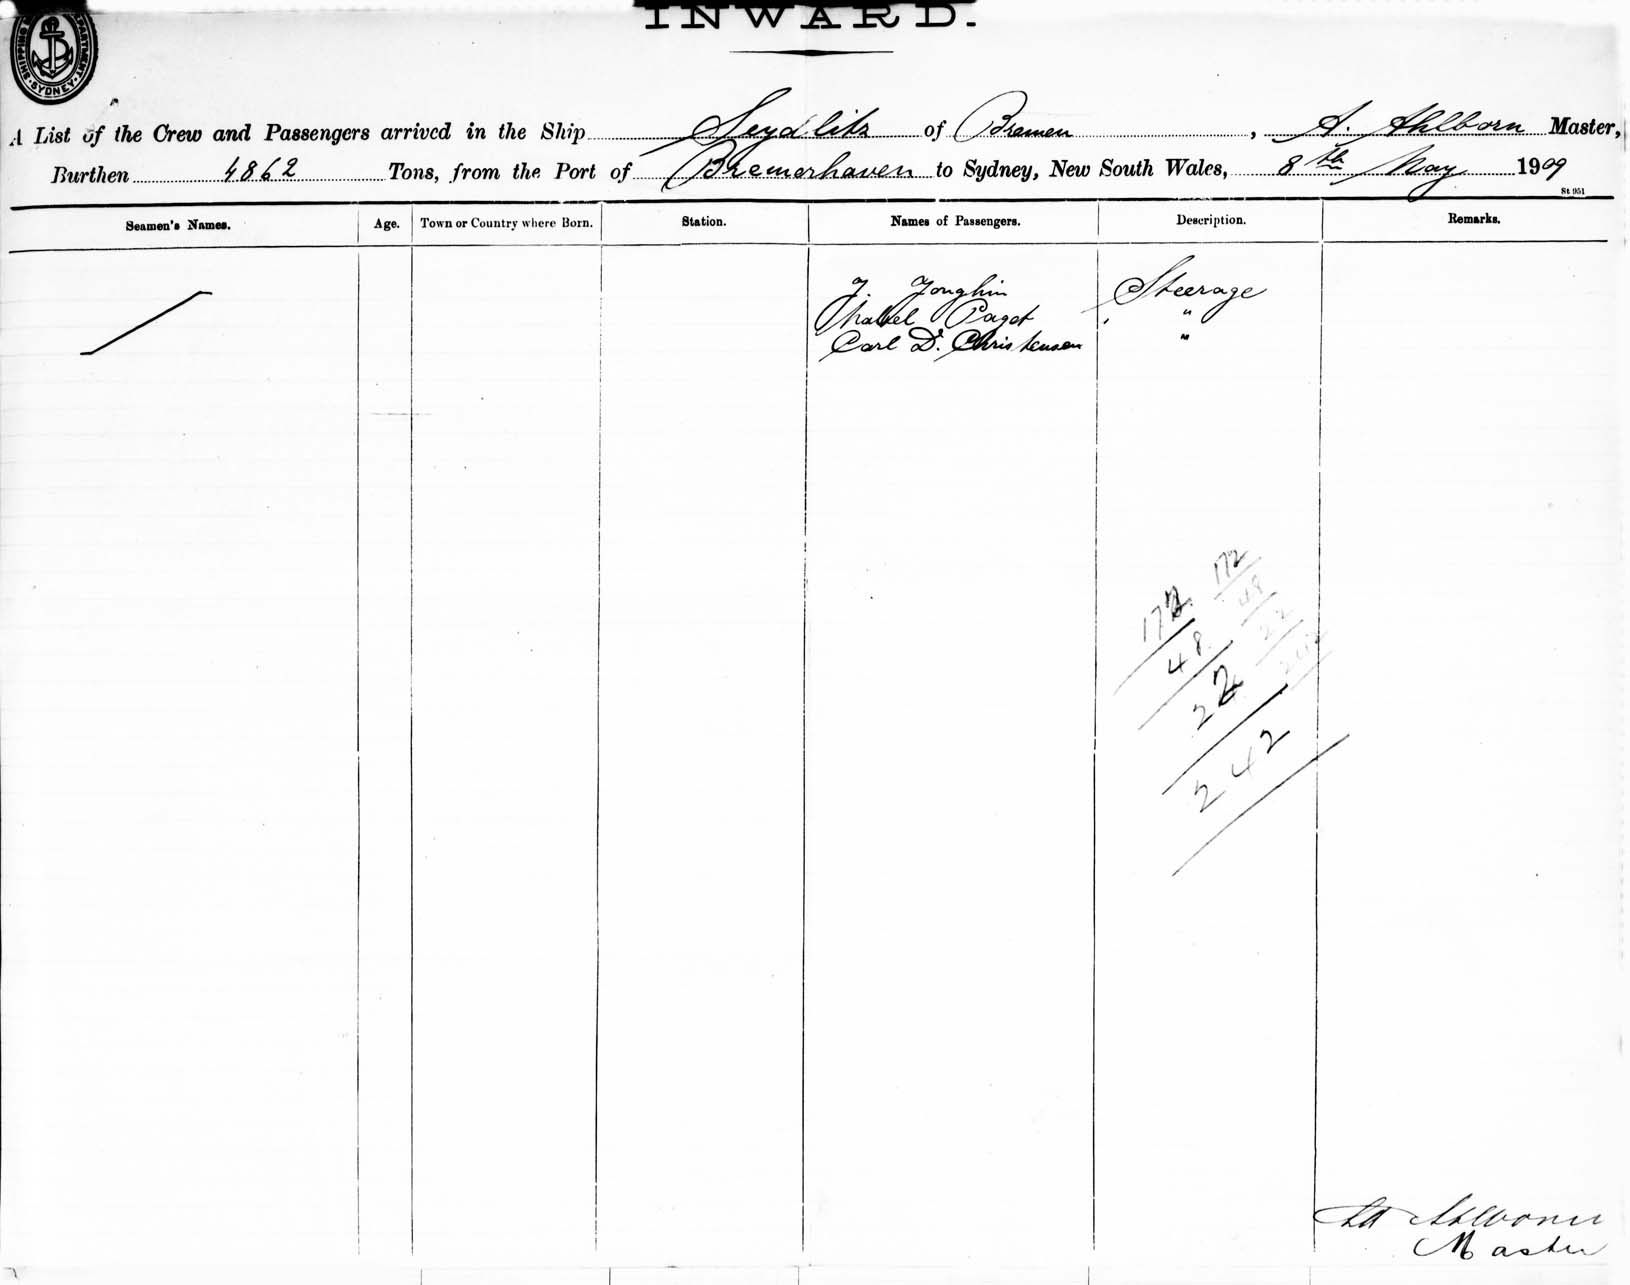 INWARD.
SHIPPING DEPARTMENT SYDNEY
A List of the Crew and Passengers arrived in the Ship Seydlitz of Bremen, A. Ahlborn Master,
Burthen 4862 Tons, from the Port of Bremerhaven to Sydney, New South Wales, 8th May 1909
St 951
Seamen's Names. Age. Town or Country where Born. Station. Names of Passengers. Description. Remarks.
J. Jonghin Steerage
Mabel Paget "
Carl D. Christensen "
172
48
22
242
172
48
22
242
Ahlborn
Master